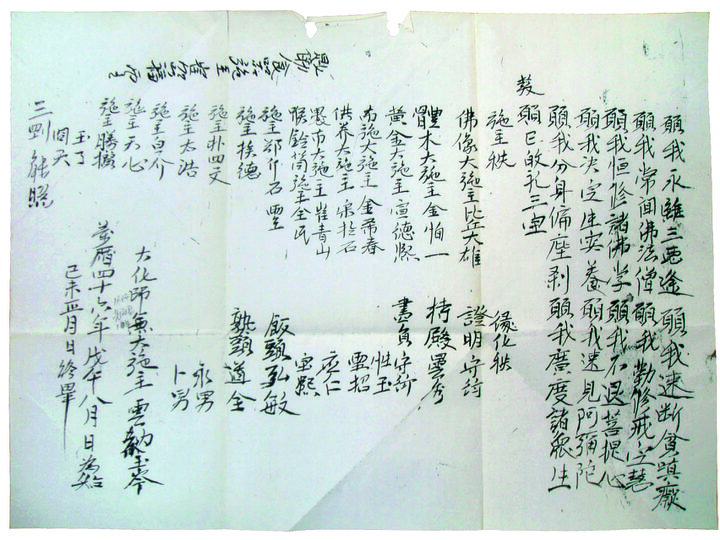 願我永離三惡途 願我速斷貪嗔癡
願我常聞佛法僧 願我勤修戒定慧
願我恒修諸佛學 願我不退菩提心
願我決定生安養 願我速見阿彌陀
願我分身徧塵刹 願我廣度諸衆生
發願已 敀礼三宝
施主秩
佛像大施主比丘大雄
體木大施主金怕一
黃金大施主宣德
布施大施主金希春
供養大施主
大施主崔青山
喉鈴筒施主全民
施主鄭介石 兩主
施主挨德
施主朴四文
施主太浩
施主白介
施主天心
施主勝
玉了
三剛 能照
緣化秩
證明守衍
持殿曇秀
畵員守衍
性玉
雲招
应仁
宝熙
飯頭弘敏
熟頭道全
永男
卜男
大化師無大施主雲
萬曆四十六年戊午八月日為始
己未正月日終畢